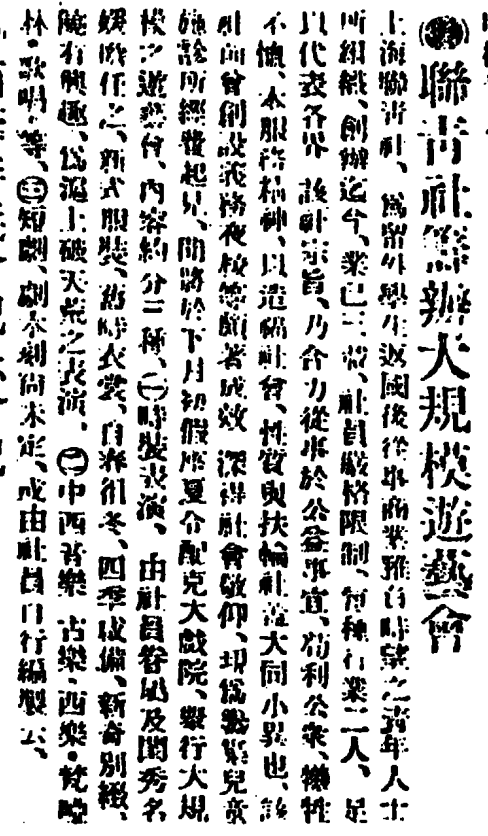 聯青社籌辦大規模遊藝會
上海聯青社、爲留外學生返國後從事商業雅負時望之靑年人士
所組織、創辦迄今、業已三載、社員嚴格限制、每種行業二人、足
以代表各界　該社宗旨、乃合力從事於公益事宜、苟利公衆、犧牲
不惜、本服務精神、以造福社會、性質與扶輪社蓋大同小異也、該
社前曾創設義務夜校等頗著成效　深得社會敬仰、現爲
兒童施診所經費起見、聞將於下月初假座夏令配克大戲院、舉行大規
模之遊藝會、內容約分三種、㊀時裝表演、由社員眷屬及閨秀名
媛擔任之、新式服裝、時衣裳、自春徂冬、四季咸備、新奇別緻、
饒有興趣、爲滬上破天荒之表演、㊁中西音樂　古樂·西樂·梵啞
林·歌唱·等、㊂短劇、劇本刻尚未定、或由社員自行編製云、